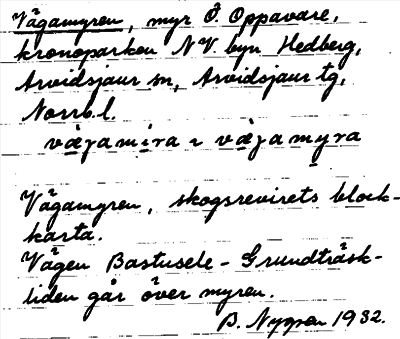 Vägamyren, myr Ö. Oppavare,
kronoparken NV. byn Hedberg,
Arvidsjaur sn, Arvidsjaur tg,
Norrb.l.
vægamira ~ vægamyra
Vägamyren, skogsrevirets block-
karta.
Vägen Bastusele - Grundträsk-
liden går över myren.
B. Nygren 1932.